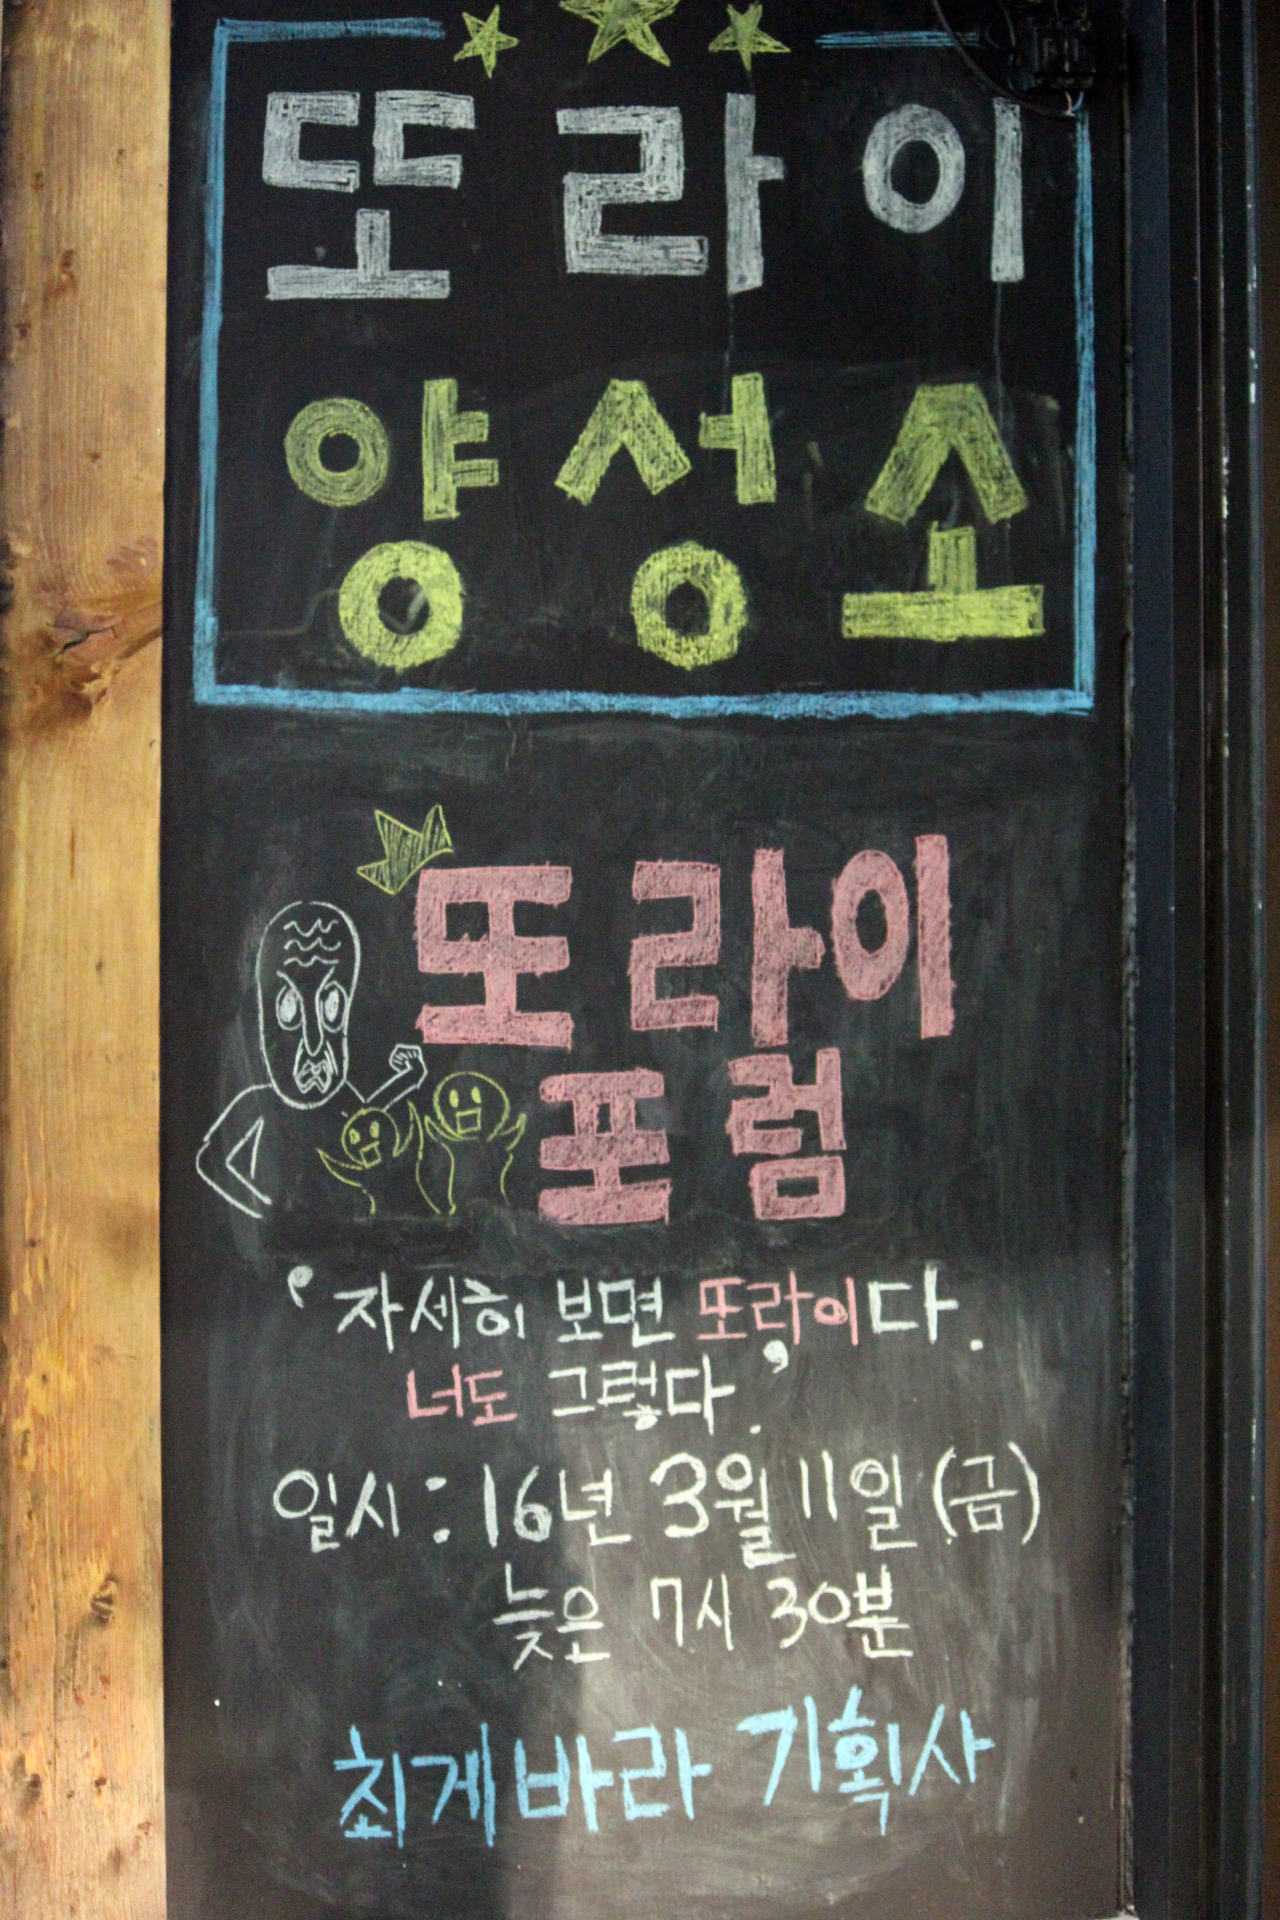 또라이
양성소
또라이
포럼
'자세히 보면 또라이다.
너도 그렇다.'
일시 : 16년 3월 11일 (금)
늦은 7시 30분
최게바라 기획사